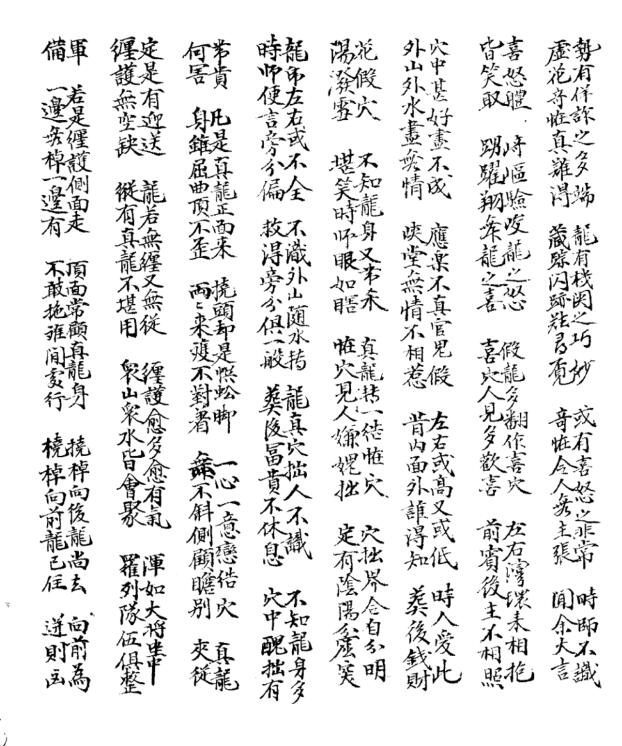 勢有佯詐之多端 虛花奇怪真難得 龍有棧閃之巧妙 藏踪閃跡難尋覓 或有喜怒之非常 奇怪令人無主張 時師不識 聞余大言
喜怒體 皆笑取 嶇險峻龍之怒 踴躍翔舞龍之喜 假龍多翻作喜穴 喜穴人見多歡喜 左右彎環来相抱 前賓後主不相照
穴中甚好盡不成 外山外水盡無情 應樂不真官鬼假 堂無情不相惹 左右或高又或低 内面外誰得知 時人爱此 葬後錢財
花假穴 陽潑雪 不知龍身又帶杀 堪笑時师眼如瞎 真龍一结怪穴 怪穴見人嫌拙 穴拙界合自分明 定有陰陽分虛实
龍师左右或不全 時师便言旁分偏 不識外山随水轉 救得旁分俱一般 龍真穴拙人不識 葬後富貴不休息 不知龍身多 穴中醜拙有
常貴 何害 凡是真龍正面来 身雖屈曲頂不歪 撓頭却是蚣脚 両々来護不對者 一心一意戀结穴 無不斜側顧瞻别 真龍 夾從
定是有迎送 纏護無空缺 龍若無纏又無從 縱有真龍不堪用 纏護愈多愈有氣 衆山衆水皆會聚 渾如大將坐中 羅列隊伍俱整
軍 備 若是纏護側面走 一邊無棹一邊有 頂面常顧真龍身 不敢拖離間處行 撓棹向後龍尚去 橈棹向前龍已住 向前為 逆則凶